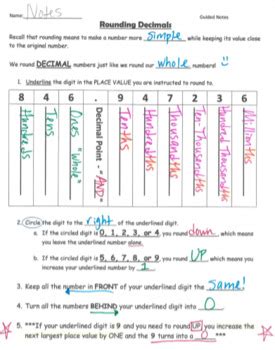 Name: Notes Guided Notes
Rounding Decimals
Recall that rounding means to make a number more simple while keeping its value close
to the original number.
We round DECIMAL numbers just like we round our whole numbers!
1. Underline the digit in the PLACE VALUE you are instructed to round to.
8 4 6 . 9 4 7 2 3 6
Hundreds Tens Ones "Whole" Decimal Point - "AND" Tenths Hundredths Thousandths Ten-Thousandths Hundred Thousandths Millionths
2. Circle the digit to the right of the underlined digit.
a. If the circled digit is 0, 1, 2, 3, or 4, you round down which means
you leave the underlined number alone
b. If the circled digit is 5, 6, 7, 8, or 9, you round UP which means you
increase your underlined number by 1
3. Keep all the number in FRONT of your underlined digit the same!
4. Turn all the numbers BEHIND your underlined digit into 0
5. ***If your underlined digit is 9 and you need to round UP you increase the
next largest place value by ONE and the 9 turns into a 0 ***